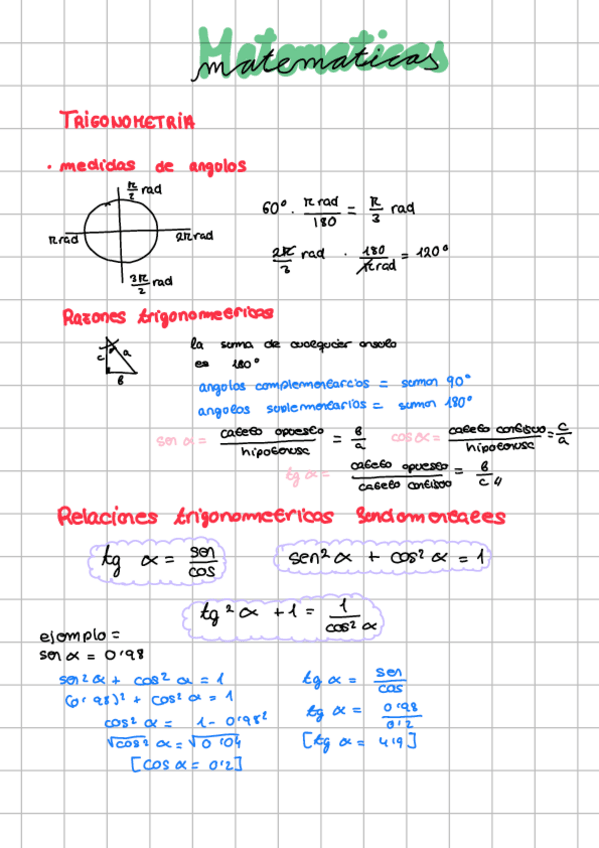 Matematicas
matematicas
TRIGONOMETRIA
· medidas de angolos
π/2 rad
π rad
2π rad
3π/2 rad
60° · π rad/180 = π/3 rad
2π/3 rad · 180/π rad = 120°
Razones trigonometricas
c a
B
la suma de cualquier angolo
es 180°
angolos complementarios = suman 90°
angolos suplementarios = suman 180°
sen α = cateto opuesto/hipotenusa = B/a cos α = cateto contiguo/hipotenusa = c/a
tg α = cateto opuesto/cateto contiguo = B/c
Relaciones trigonometricas fundamentales
tg α = sen/cos
sen² α + cos² α = 1
tg² α + 1 = 1/cos² α
ejemplo =
sen α = 0'98
sen² α + cos² α = 1
(0'98)² + cos² α = 1
cos² α = 1 - 0'98²
√cos² α = √0'04
[cos α = 0'2]
tg α = sen/cos
tg α = 0'98/0'2
[tg α = 4'9]